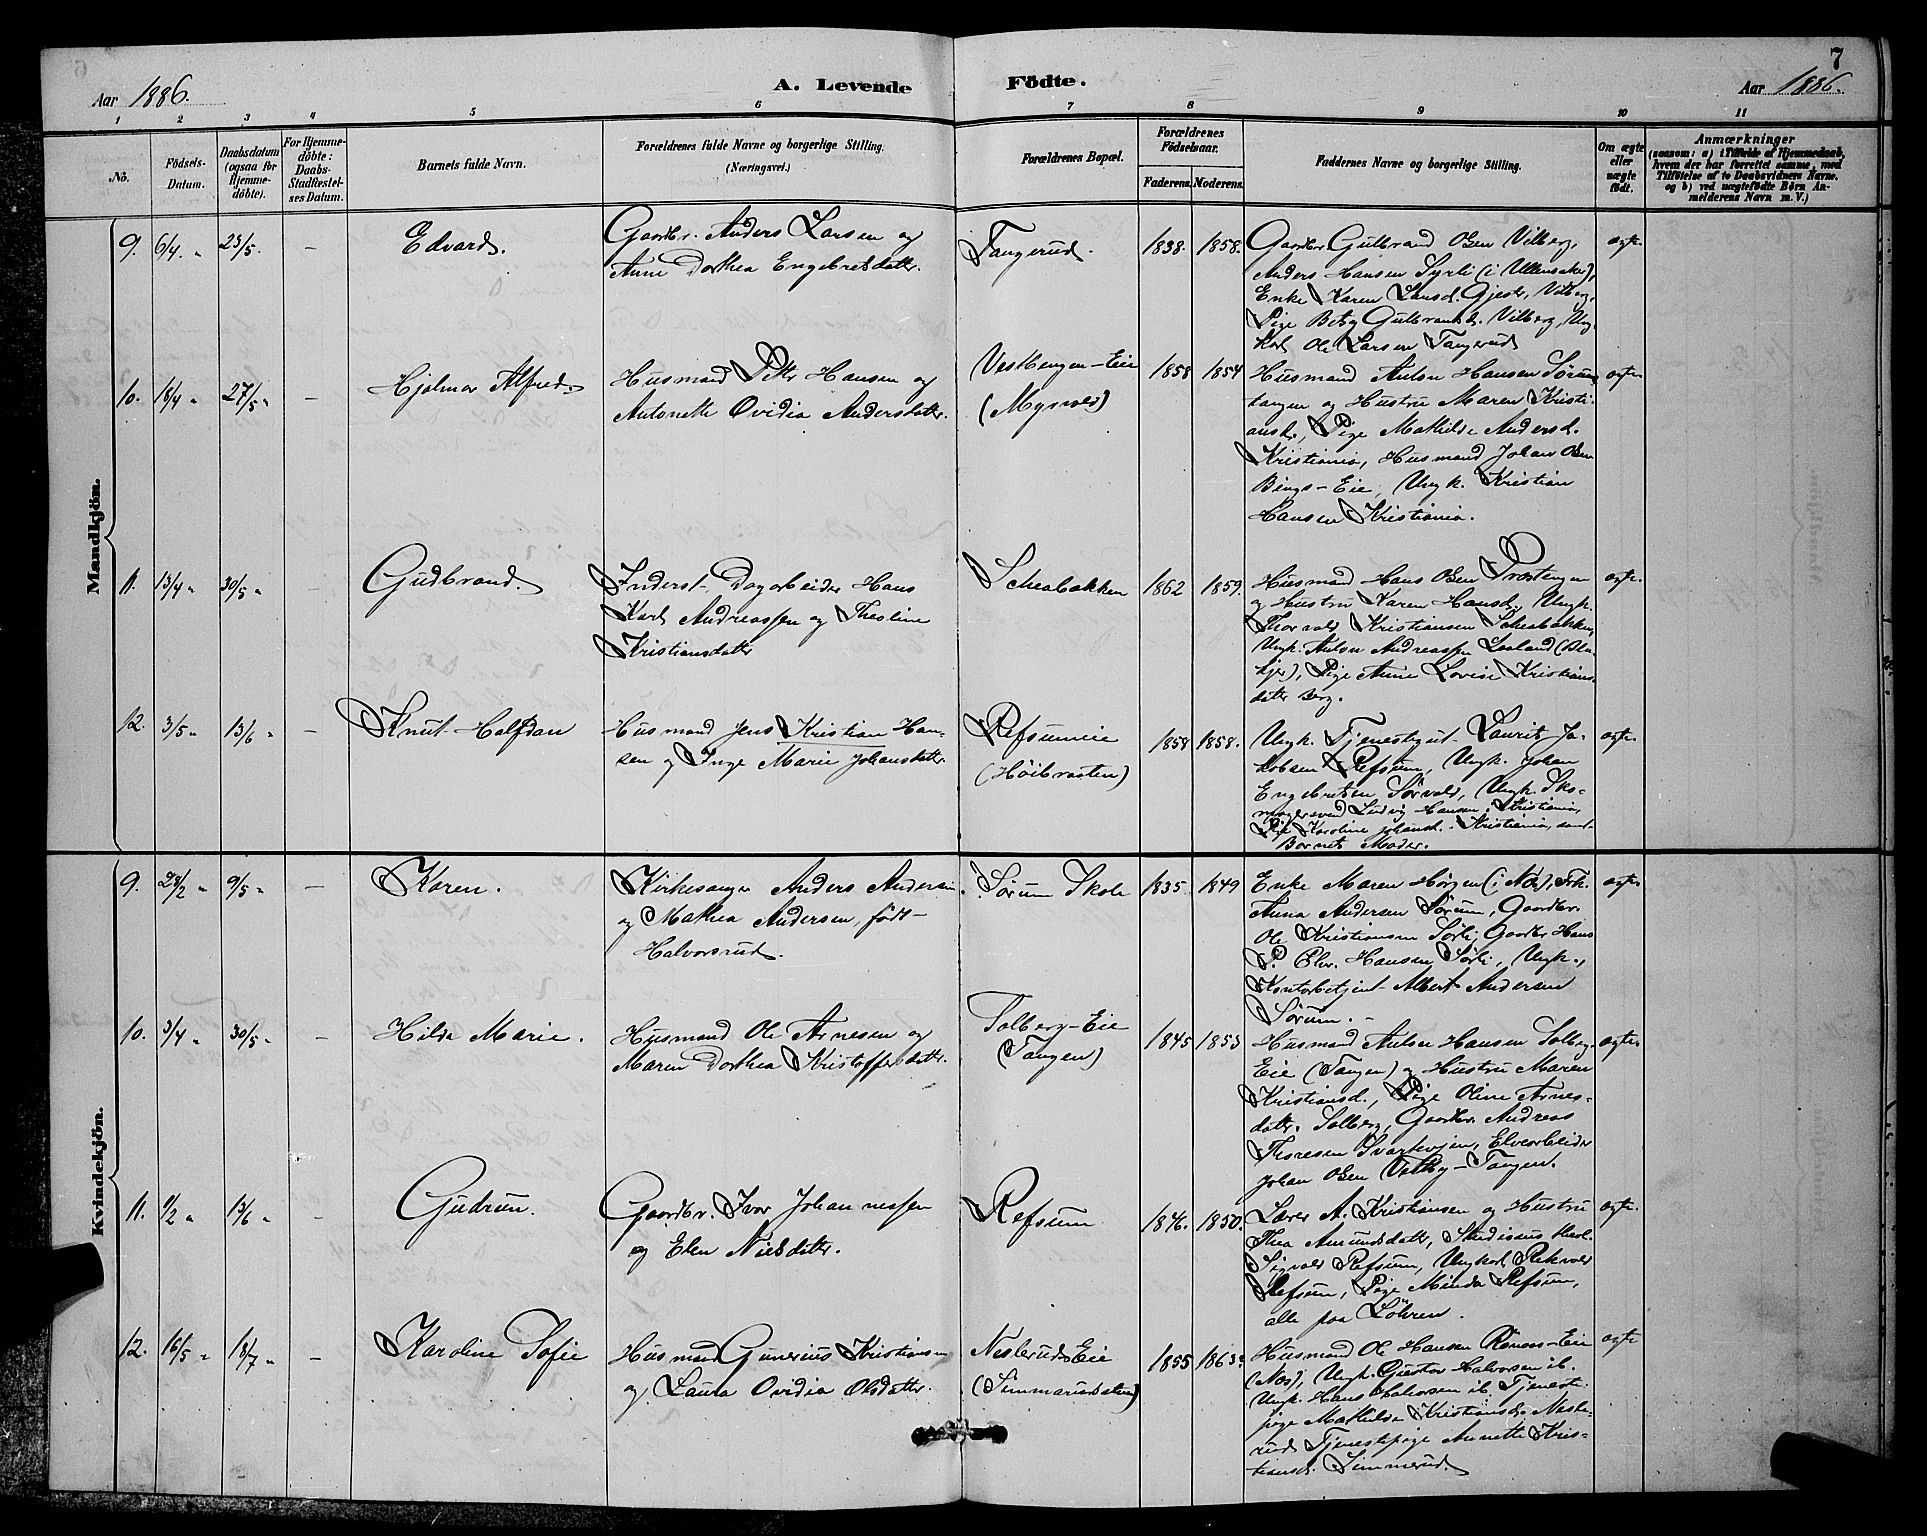 7
Aar 1886.
A. Levende Födte.
Aar 1886.
1 2 3 4 5 6 7 8 9 10 11
No.
Födsels-Datum.
Daabsdatum (ogsaa for Hjemme-döbte).
For Hjemme-döbte: Daabs-Stadfestel-ses Datum.
Barnets fulde Navn.
Forældrenes fulde Navne og borgerlige Stilling. (Næringsvei.)
Forældrenes Bopæl.
Forældrenes Födselsaar.
Faderens. Moderens.
Faddernes Navne og borgerlige Stilling.
Om ægte eller uægte födt.
Anmærkninger
(saasom: a) i Tilfælde af Hjemmedaab, hvem der har forrettet samme, med Tilföielse af to Daabsvidners Navne, og b) ved uægtefödte Börn An-melderens Navn m. V.)
Mandkjön.
9. 6/4 " 23/5. – Edvard.
Gaardbr. Anders Larsen og
Anne Dorthea Engebretsdatter.
Tangerud. 1838. 1858.
Gaardbr. Gulbrand Olsen Vilberg,
Anders Hansen Syrli (i Ullensaker),
Enke Karen Larsd. Gjestr, Vilberg,
Pige Betsy Gulbrandsd. Vilberg, Ung-
karl Ole Larsen Tangerud
ægte.
10. 16/4 " 27/5 " – Hjalmar Alfred.
Husmand Petter Hansen og
Antonette Ovidia Andersdatter.
Vestbengen-Eie
(Mysvold)
1858 1854
Husmand Anton Hansen Sørum
tangen og Hustru Maren Kristi-
ansd., Pige Mathilde Andersd.
Kristiania, Husmand Johan Olsen
Bings-Eie, Ungk. Kristian
Hansen Kristiania.
ægte.
11. 13/4 " 30/5 " – Gudbrand.
Inderst Dagarbeider Hans
Karl Andreassen og Theoline
Kristiansdatter
Scheabakken 1862 1859.
Husmand Hans Olsen Præstengen
og Hustru Karen Hansd., Ungk.
Thorvald Kristiansen Scheabakken,
Ungk. Anton Andreassen Laaland (Bla-
kjer), Pige Anne Lovise Kristians-
datter Berg.
ægte.
12. 3/5 " 13/6 " – Knut Halfdan
Husmand Jens Kristian Han-
sen og Inge Marie Johansdatter.
Refsumeie
(Høibraaten)
1858 1858.
Ungk. Tjenestegut Laurits Ja-
kobsen Refsum, Ungk. Johan
Engebretsen Sørvald, Ungk. Sko-
magersvend Ludvig Hansen, Kristiania,
Pige Karoline Johansd. Kristiania, samt
Barnets Moder.
ægte.
Kvindekjön.
9. 28/2 " 9/5 " – Karen.
Kirkesanger Anders Andersen
og Mathea Andersen, født
Halvorsrud.
Sørum Skole 1835. 1849
Enke Maren Hørgen (i Næs), Frk.
Anna Andersen Sørum, Gaardbr.
Ole Kristiansen Sørli, Gaardbr. Hans
P. Elv. Hansen Sørli, Ungk.,
Kontorbetjent Albert Andersen
Sørum. –
ægte.
10. 3/4 " 30/5 " – Hilda Marie.
Husmand Ole Arnesen og
Maren Dorthea Kristoffersdatter.
Solberg-Eie
(Tangen)
1845 1853
Husmand Anton Hansen Solberg-
Eie (Tangen) og Hustru Maren
Kristiansd., Pige Oline Arnes-
datter. Solberg, Gaardbr. Andreas
Thoresen Svarthøjen, Elvearbeider
Johan Olsen Valby-Tangen.
ægte.
11. 9/2 " 13/6 " – Gudrun.
Gaardbr. Ivar Johannessen
og Elen Nielsdatter.
Refsum 1846. 1850.
Lærer A. Kristiansen og Hustru
Thea Amundsdatter, Studiosus theol.
Sigvald Refsum, Ungkarl Rekvald
Refsum, Pige Minda Refsum,
alle paa Løhren.
ægte.
12. 16/5 " 18/7 " – Karoline Sofie
Husmand Gunerius Kristiansen
og Laura Ovidia Olsdatter.
Neslerud Eie
(Simmarudsalen)
1855 1863.
Husmand Ole Hansen Rønaas-Eie
(Næs), Ungk. Gustav Halvorsen ib.
Ungk. Hans Halvorsen ib. Tjeneste-
pige Mathilde Kristiansd. Nesle-
rud Tjenestepige Annette Kris-
tiansd. Simmerud.
ægte